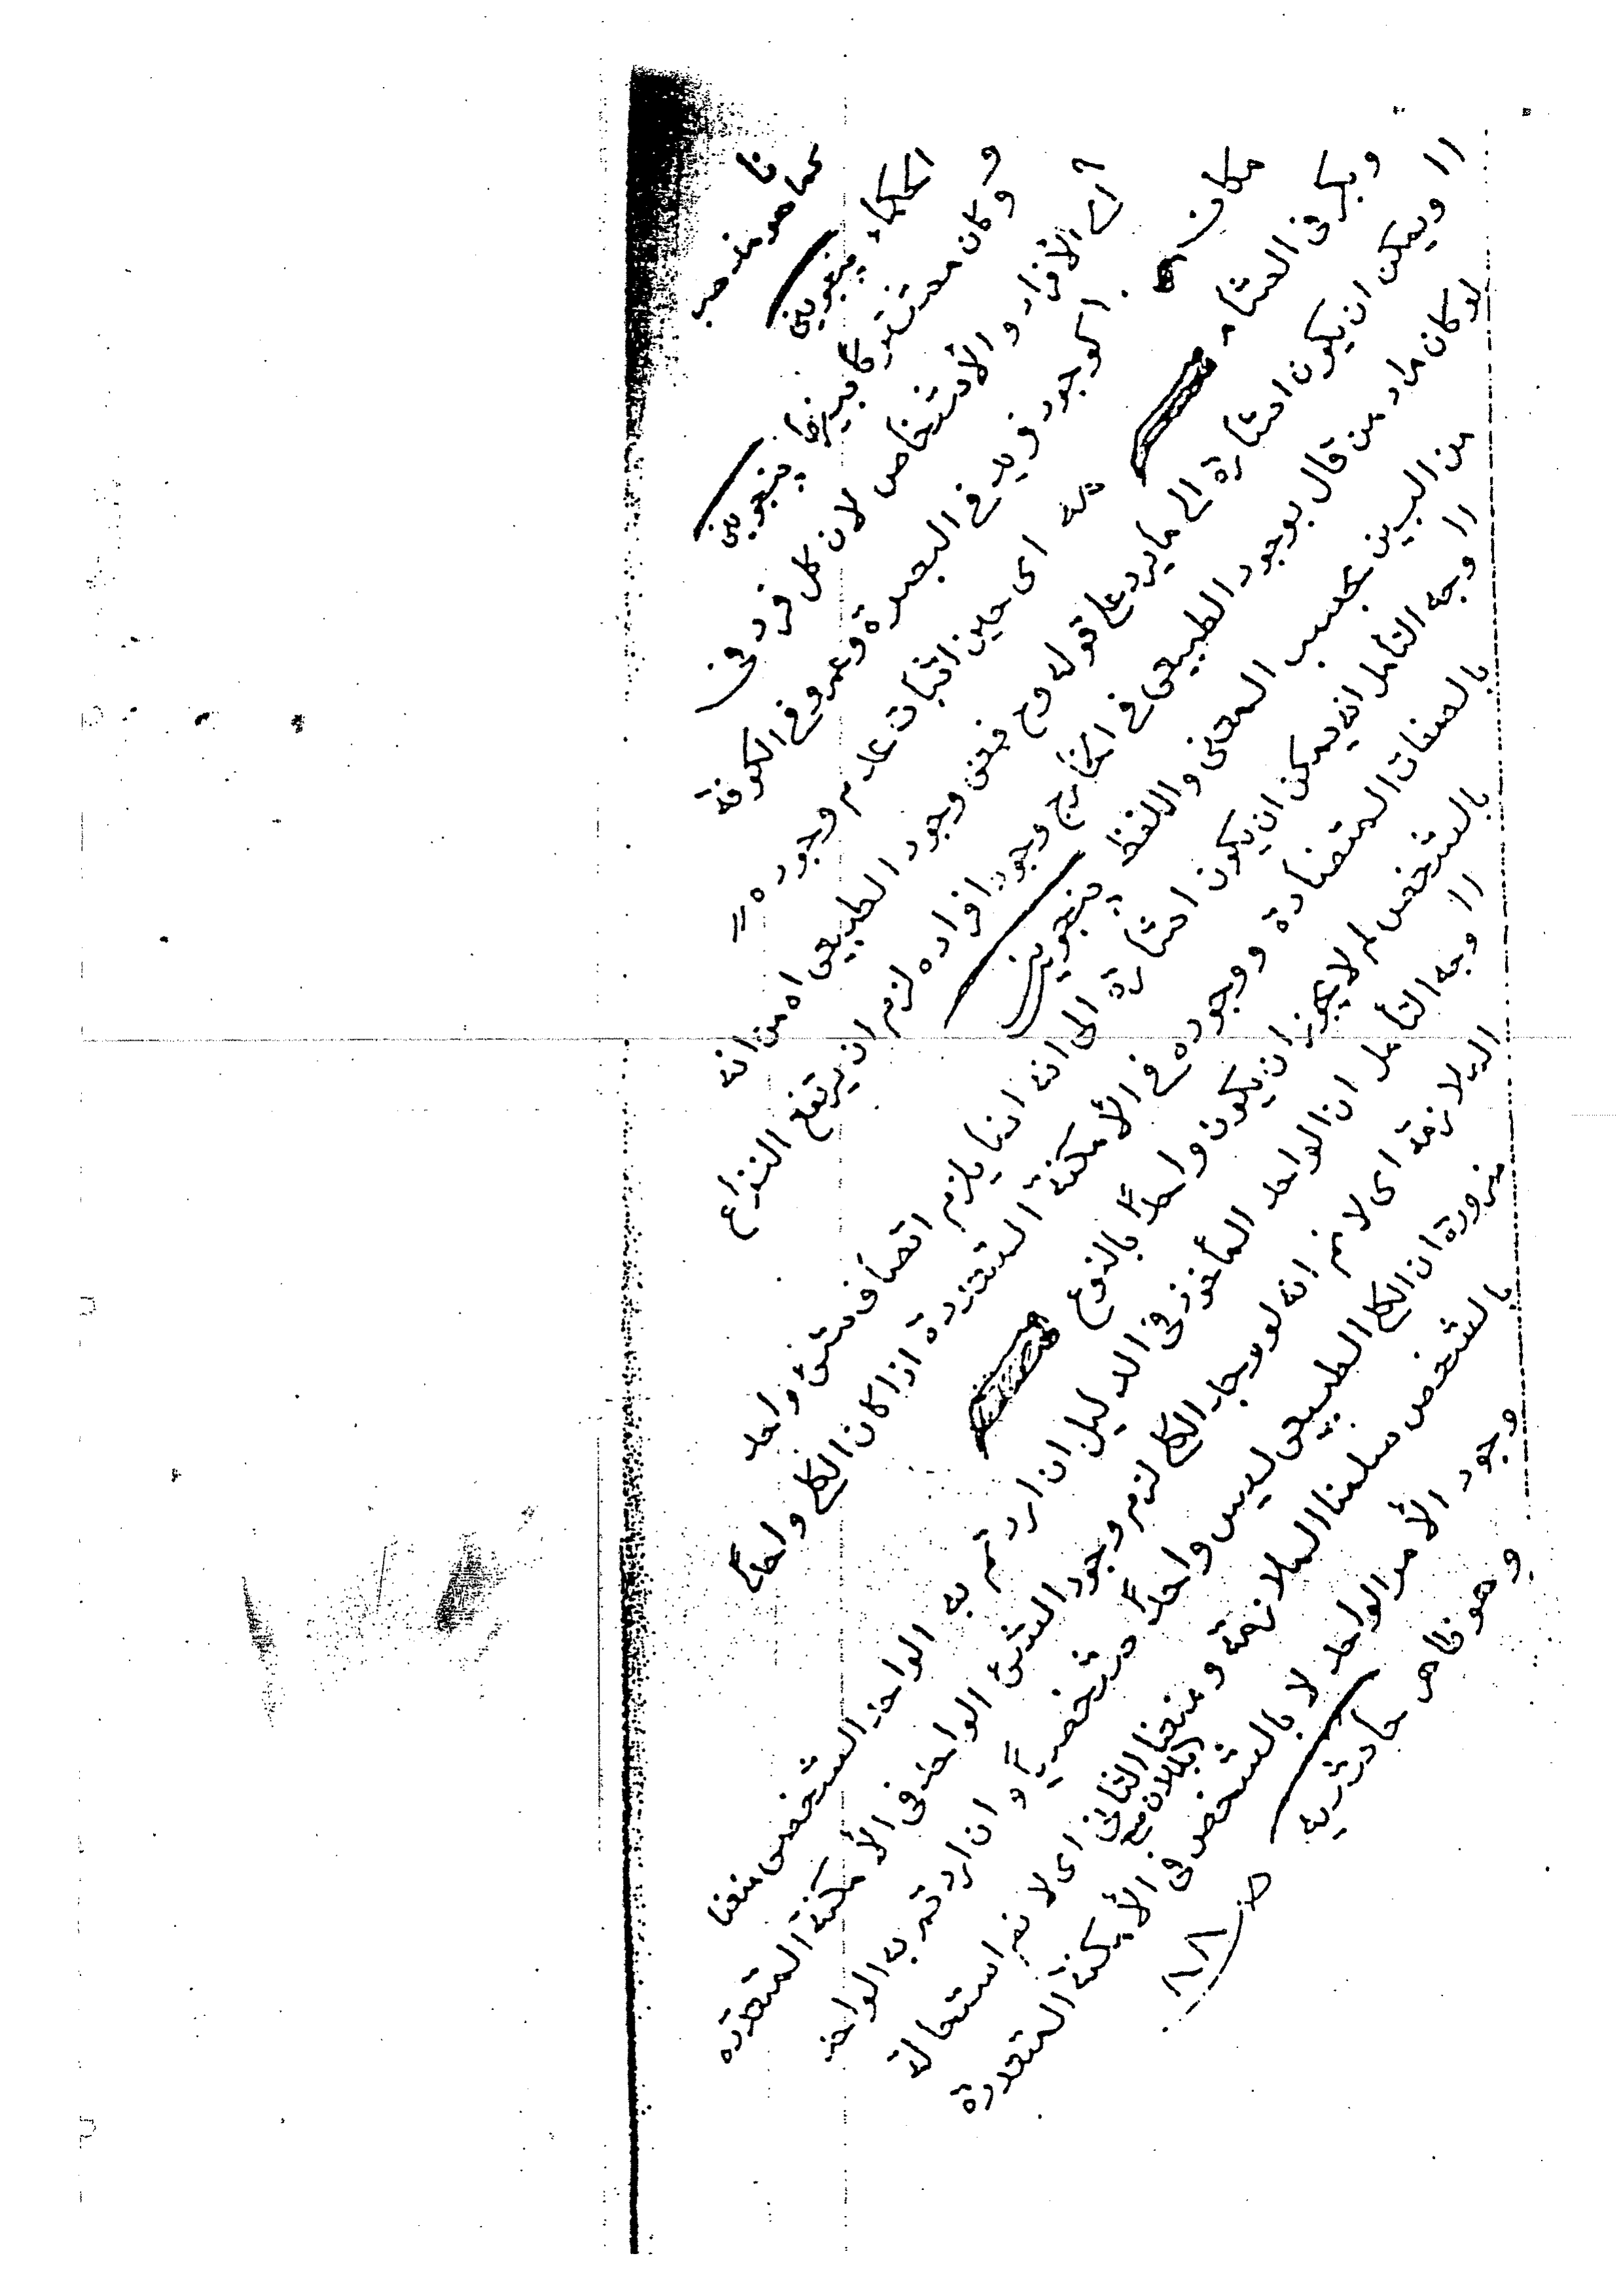 عما هو مذهب
الحكماء پنجوینی
و
وكان معتقدو كا بنیرها پنجوینی
؟ ای الأفراد والأشخاص لان كل فرد فی
مكان
الموجود فريد في البصرة وعمرو في الكوفة
وبكر في الشام
منه ای حين اثبات عدم وجوده =
رر ويمكن ان يكون اشارة الى ما يرد على قوله وح فمعنى وجود الطبيعي اه من انه
لو كان مراد من قال بوجود الطبيعي في الخارج وجود افراده لزم ان يرتفع النزاع
من البين بحسب المعنى واللفظ پنجوینی
رر وجه التأمل انه يمكن ان يكون اشارة الى انه انما يلزم اتصاف شئ واحد
بالصفات المتضادة ووجوده في الأمكنة المتعددة اذا كان الكلي واحداً
بالشخص لم لا يجوز ان يكون واحداً بالنوع
رر وجه التأمل ان الواحد المأخوذ في الدليل ان اردتم به الواحد الشخصي منعنا
الملازمة ای لا نم انه لو وجد الكلي لزم وجود الشئ الواحد في الأمكنة المتعددة
ضرورة ان الكلي الطبيعي ليس واحداً شخصياً و ان اردتم به الواحد
بالشخص سلمنا الملازمة ومنعنا الثاني ای لا نم استحالة
بطلان مع
وجود الأمر الواحد لا بالشخص في الأمكنة المتعددة
وهو ظاهر جادثريه
ص ١٨